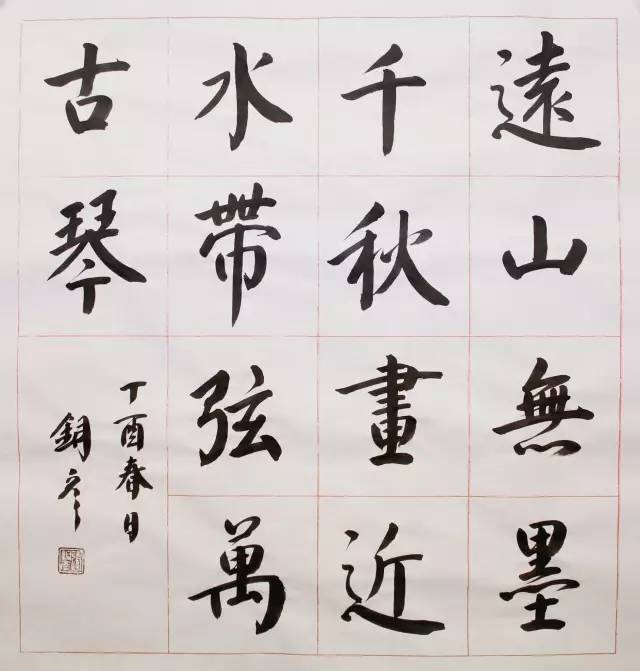 遠山無墨
千秋畫近
水帶弦萬
古琴
丁酉春日
銅彥